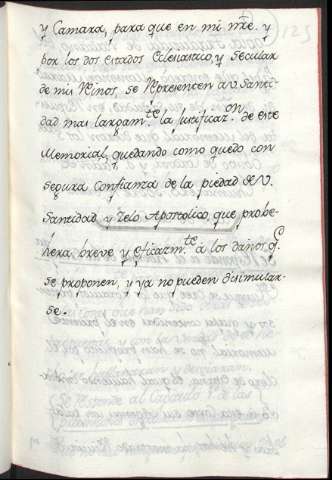 125
y Camara, para que en mi nre. y
por los dos estados Eclesiastico, y Secular
de mis Reinos, se Representen a V. Santi-
dad mas largam.te la justificaz.on de este
Memorial, quedando como quedo con
segura Confianza de la piedad de V.
Santidad y Zelo Apostolico, que probe-
hera, breve y eficazm.te à los daños q.
se proponen, y ya no pueden disimular-
se.